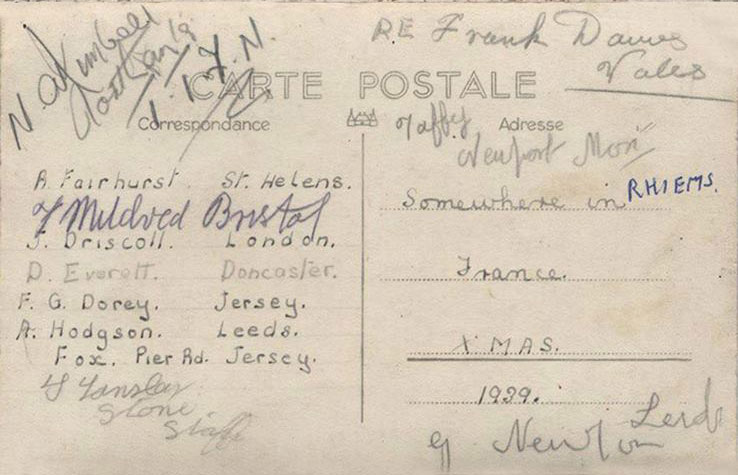 N.
RE Frank
CARTE POSTALE
Correspondance
Taffy Adresse
Newport Mon
A. Fairhurst. St. Helens.
Mildred Bristol
J. Driscoll. London.
D. Everett. Doncaster.
F. G. Dorey. Jersey.
A. Hodgson. Leeds.
Fox. Pier Rd. Jersey.
Stone
Staffs
Somewhere in RHIEMS.
France.
XMAS.
1939.
Newton Leeds